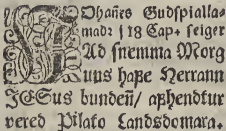 JOhañes Gudspialla-
madz j 18 Cap. seiger
Ad snemma Morg
uns haƿe Herrann
JESus bundeñ/ aƿhendtur
vered Pilato Landsdomara.